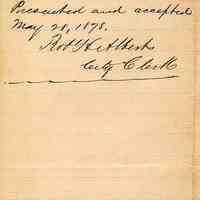 Presented and accepted
May 28, 1878.
Robt H Albert
City Clerk